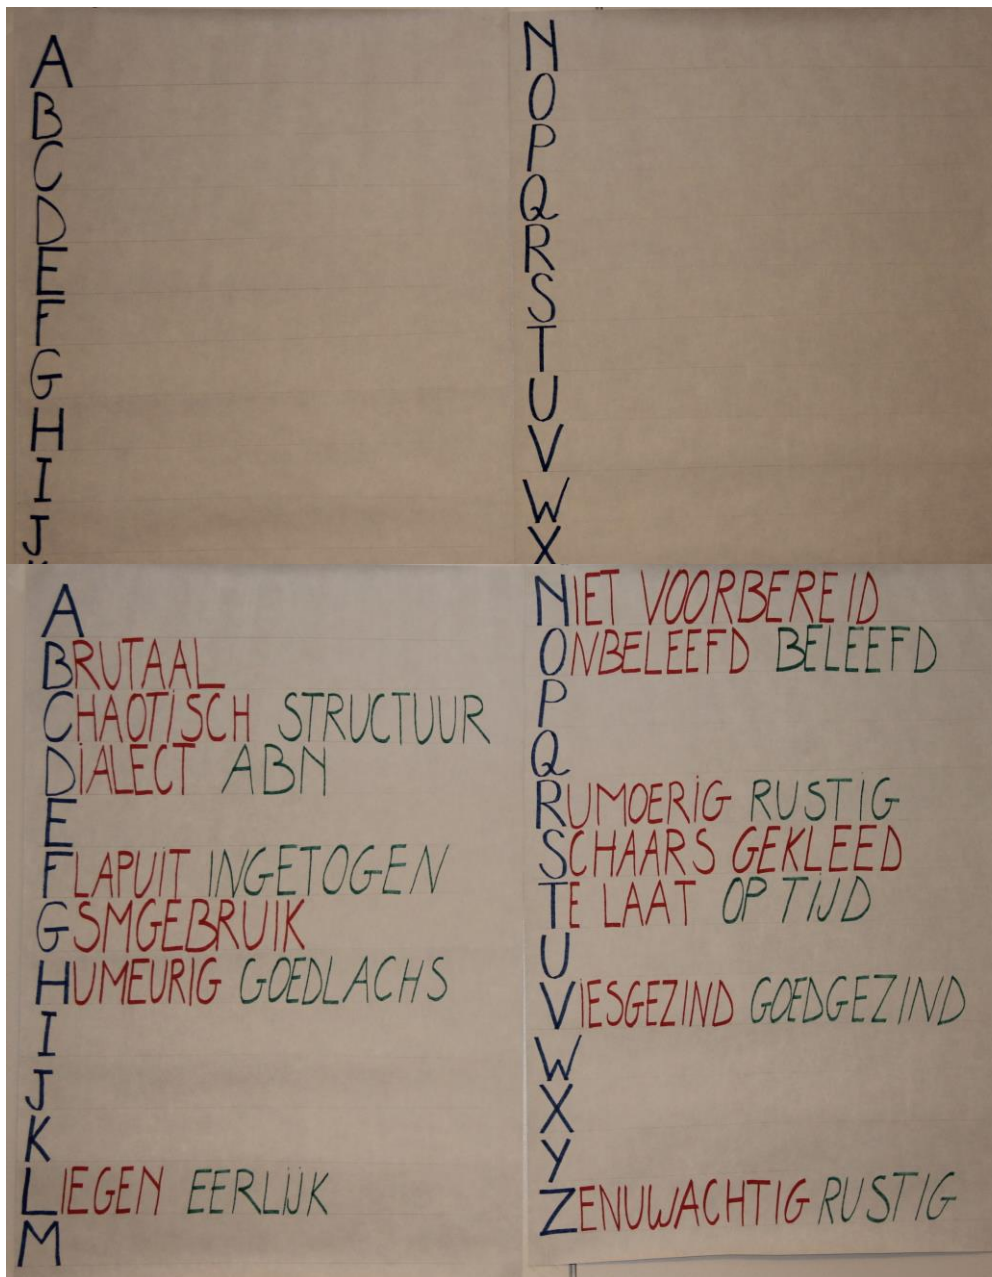 A
B
C
D
E
F
G
H
I
J
N
O
P
Q
R
S
T
U
V
W
X
A
BRUTAAL
CHAOTISCH STRUCTUUR
DIALECT ABN
E
FLAPUIT INGETOGEN
GSMGEBRUIK
HUMEURIG GOEDLACHS
I
J
K
LIEGEN EERLIJK
M
NIET VOORBEREID
ONBELEEFD BELEEFD
P
Q
RUMOERIG RUSTIG
SCHAARS GEKLEED
TE LAAT OP TIJD
U
VIESGEZIND GOEDGEZIND
W
X
Y
ZENUWACHTIG RUSTIG